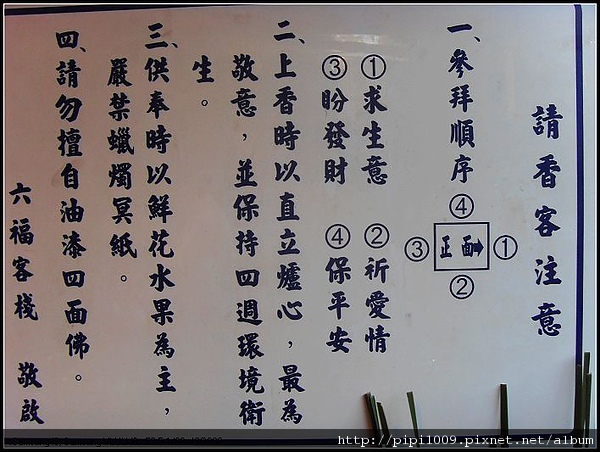 請香客注意
一、參拜順序
④
③ 正面→ ①
②
①求生意 ②祈愛情
③盼發財 ④保平安
二、上香時以直立爐心，最為
敬意，並保持四週環境衛
生。
三、供奉時以鮮花水果為主，
嚴禁蠟燭冥紙。
四、請勿擅自油漆四面佛。
六福客棧 敬啟
http://pipi1009.pixnet.net/album